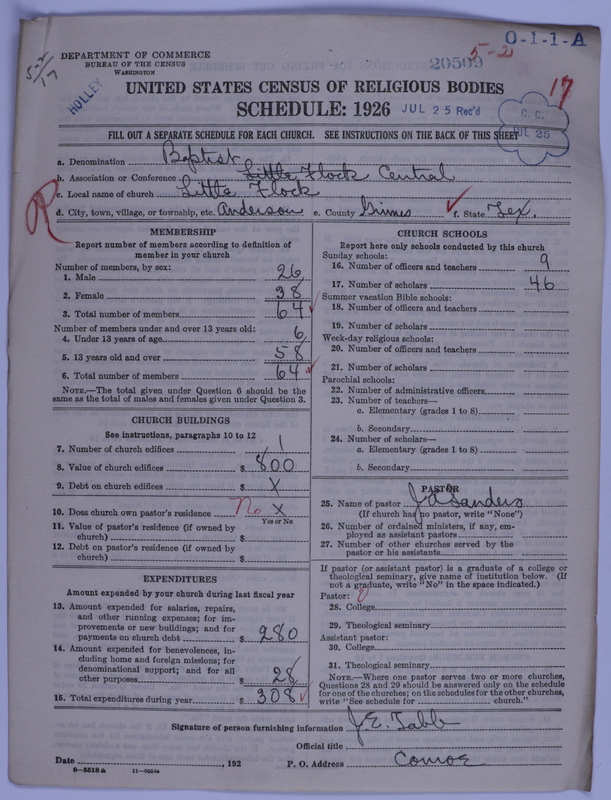 O-1-1-A
5-2
20509
5-2/17
17
DEPARTMENT OF COMMERCE
BUREAU OF THE CENSUS
WASHINGTON
HOLLEY
UNITED STATES CENSUS OF RELIGIOUS BODIES
SCHEDULE: 1926 JUL 25 Rec'd
C. C.
JUL 25
FILL OUT A SEPARATE SCHEDULE FOR EACH CHURCH. SEE INSTRUCTIONS ON THE BACK OF THIS SHEET
a. Denomination Baptist
b. Association or Conference Little Flock Central
c. Local name of church Little Flock
R
d. City, town, village, or township, etc. Anderson e. County Grimes f. State Tex.
MEMBERSHIP
Report number of members according to definition of
member in your church
Number of members, by sex:
1. Male 26
2. Female 38
3. Total number of members 64
Number of members under and over 13 years old:
4. Under 13 years of age 6
5. 13 years old and over 58
6. Total number of members 64
NOTE.—The total given under Question 6 should be the
same as the total of males and females given under Question 3.
CHURCH BUILDINGS
See instructions, paragraphs 10 to 12
7. Number of church edifices 1
8. Value of church edifices $ 800
9. Debt on church edifices $ X
10. Does church own pastor's residence No X
Yes or No
11. Value of pastor's residence (if owned by
church) $
12. Debt on pastor's residence (if owned by
church) $
EXPENDITURES
Amount expended by your church during last fiscal year
13. Amount expended for salaries, repairs,
and other running expenses; for im-
provements or new buildings; and for
payments on church debt $ 280
14. Amount expended for benevolences, in-
cluding home and foreign missions; for
denominational support; and for all
other purposes $ 28
15. Total expenditures during year $ 308
CHURCH SCHOOLS
Report here only schools conducted by this church
Sunday schools:
16. Number of officers and teachers 9
17. Number of scholars 46
Summer vacation Bible schools:
18. Number of officers and teachers
19. Number of scholars
Week-day religious schools:
20. Number of officers and teachers
21. Number of scholars
Parochial schools:
22. Number of administrative officers
23. Number of teachers—
a. Elementary (grades 1 to 8)
b. Secondary
24. Number of scholars—
a. Elementary (grades 1 to 8)
b. Secondary
PASTOR
25. Name of pastor J A Sanders
(If church has no pastor, write "None")
26. Number of ordained ministers, if any, em-
ployed as assistant pastors
27. Number of other churches served by the
pastor or his assistants
If pastor (or assistant pastor) is a graduate of a college or
theological seminary, give name of institution below. (If
not a graduate, write "No" in the space indicated.)
Pastor: 0
28. College
29. Theological seminary
Assistant pastor:
30. College
31. Theological seminary
NOTE.—Where one pastor serves two or more churches,
Questions 28 and 29 should be answered only on the schedule
for one of the churches; on the schedules for the other churches,
write "See schedule for church."
Signature of person furnishing information J. E. Tabb
Official title
Date , 192 P. O. Address Conroe
8-5518a 11-9554a